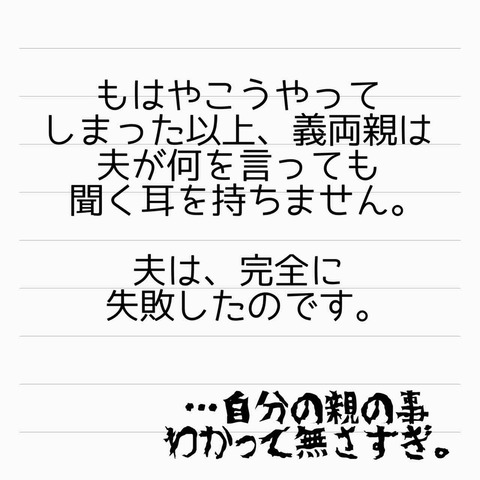 もはやこうやって
しまった以上、義両親は
夫が何を言っても
聞く耳を持ちません。
夫は、完全に
失敗したのです。
…自分の親の事
わかって無さすぎ。